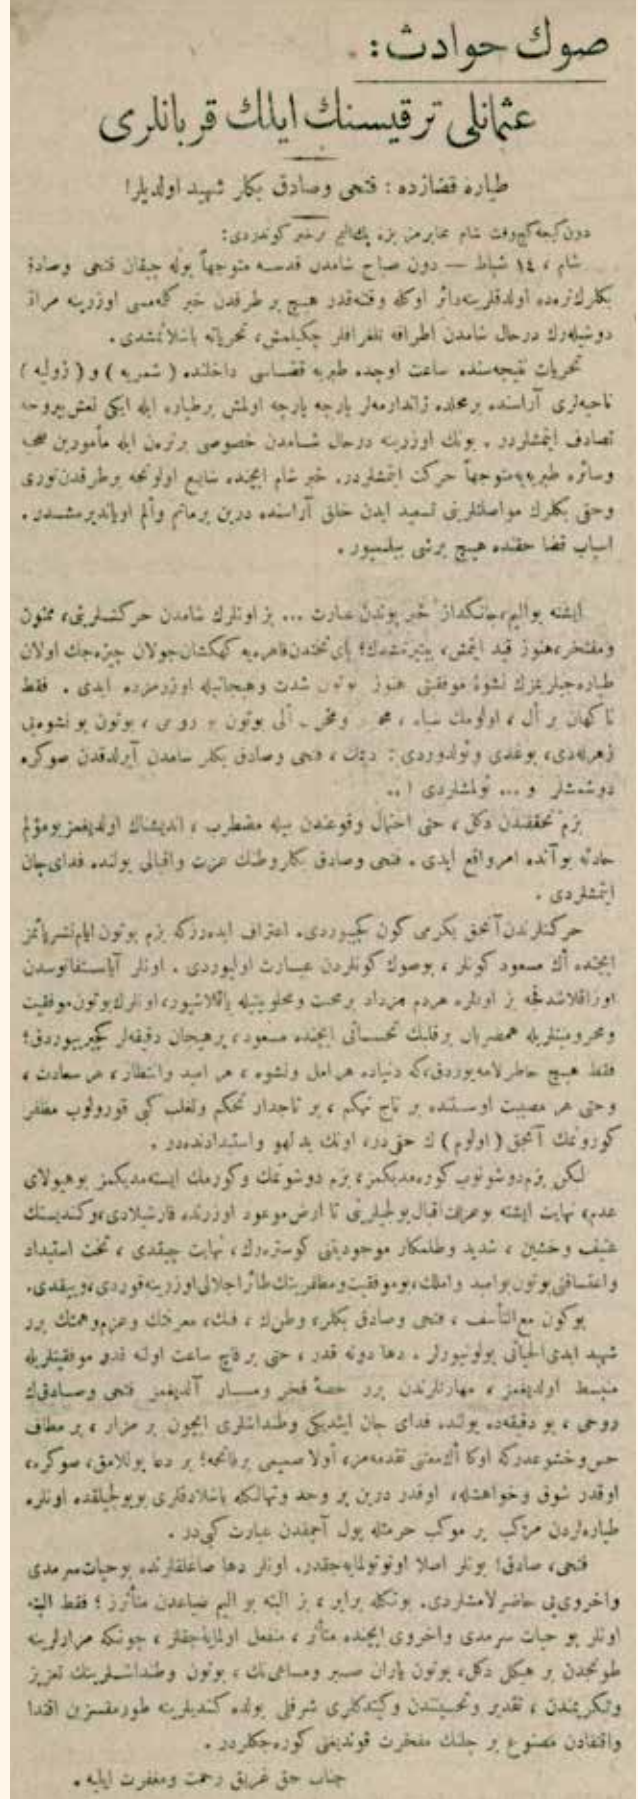 صوك حوادث :
عثمانلی ترقیسنك ایلك قربانلری
طیاره قضازده : فتحی وصادق بكلر شهید اولدیلر!
دون كیجه كچ وقت شام مخابرمز بزه پك الیم بر خبر كوندردی :
شام ، ١٤ شباط — دون صباح شامدن قدسه متوجهاً یوله چیقان فتحی وصادق
بكلرك نره‌ده اولدقلرینه دائر اوكله وقتنه قدر هیچ بر طرفدن خبر كلمه‌مسی اوزرینه مراقه
دوشیله‌رك درحال شامدن اطرافه تلغرافلر چكیلمش ، تحریاته باشلانمشدی .
تحریات نتیجه‌سنده ساعت اوچده طبریه قضاسی داخلنده ( سمریه ) و ( زولیه )
ناحیه‌لری آراسنده بر محلده ژاندارمه‌لر پارچه پارچه اولمش بر طیاره ایله ایكی نعش بی‌روحه
تصادف ایتمشلردر . بونك اوزرینه درحال شامدن خصوصی بر ترن ایله مأمورین صحیه
وسائره طبریه‌یه متوجهاً حركت ایتمشلردر . خبر شام ایچنده شایع اولونجه بر طرفدن نوری
وحقی بكلرك مواصلتلرینی تسعید ایدن خلق آراسنده درین بر ماتم وألم اویاندیرمشدر .
اسباب قضا حقنده هیچ برشی بیلنمیور .
ایشته بو الیم ، جانكداز خبر بوندن عبارت ... بز اونلرك شامدن حركتلرینی ، ممنون
ومفتخر ، هنوز قید ایتمش ، بیتیرمشدك ؛ پای تختدن قاهره‌یه كهكشان جولان چیزه‌جك اولان
طیاره‌جیلریمزك نشوهٔ موفقیتی هنوز بوتون شدت وهیجانیله اوزرمزده ایدی . فقط
ناكهان بر أل ، اولومك سیاه ، ألی بوتون بو ، بوتون بو نشوه‌یی
زهرله‌دی ، بوغدی وئولدوردی : دیمك ، فتحی وصادق بكلر شامدن آیرلدقدن صوكره
دوشمشلر و ... ئولمشلردی ! ..
بزم تحققندن دكل ، حتی احتمال وقوعندن بیله مضطرب ، اندیشناك اولدیغمز بو مؤلم
حادثه بو آنده امر واقع ایدی . فتحی وصادق بكلر وطنك عزت واقبالی یولنده فدای جان
ایتمشلردی .
حركتلرندن آنجق یكرمی كون كچیوردی . اعتراف ایده‌رزكه بزم بوتون ایام نشریاتمز
ایچنده اڭ مسعود كونلر ، بو صوك كونلردن عبارت اولیوردی . اونلر آیاستفانوسدن
اوزاقلاشدقجه بز اونلره هردم مزداد بر محبت ومجلوبیتله یاقلاشیور ، اونلرك بوتون موفقیت
ومحرومیتلریله همضربان بر قلبك تحسساتی ایچنده مسعود ، پرهیجان دقیقه‌لر كچیریوردق ؛
فقط هیچ خاطرلامه‌یوردق‌كه دنیاده هر امل ونشوه ، هر امید وانتظار ، هر سعادت ،
وحتی هر مصیبت اوستنده بر تاج تهكم ، بر تاجدار تحكم وتغلب كبی قورولوب مظفر
كورونمك آنجق ( اولوم ) ك حقی‌در ، اونك ید لهو واستبدادنده‌در .
لكن بزم دوشونوب كوره‌مدیكمز ، بزم دوشونمك وكورمك ایسته‌مدیكمز بو هیولای
عدم ، نهایت ایشته بو عزت اقبال یولجیلرینی تا ارض موعود اوزرنده قارشیلادی ، وكندیسنك
عنیف وخشین ، شدید وظلمكار موجودیتنی كوستره‌رك ، نهایت چیقدی ، تخت استبداد
واعتسافنی بوتون بو امید واملك ، بو موفقیت ومظفریتك طائر اجلالی اوزرینه قوردی ، وییقدی .
بوكون مع التأسف ، فتحی وصادق بكلر ، وطن ك ، فنك ، معرفتك وعزم وهمتك برر
شهید ابدی الحیاتی بولونیورلر . دها دونه قدر ، حتی بر قاچ ساعت اولنه قدر موفقیتلریله
منبسط اولدیغمز ، مهارتلرندن برر حصهٔ فخر ومسار آلدیغمز فتحی وصادقك
روحی ، بو دقیقه‌ده یولنده فدای جان ایتدیكی وطنداشلری ایچون بر مزار ، بر مطاف
حس وخشوعدركه اوكا اڭ معنی تقدمه‌مز ، أولا صمیمی بر فاتحه ؛ بر دعا یوللامق ، صوكره ،
اوقدر شوق وخواهشله ، اوقدر درین بر وجد وتهالكله باشلادقلری بو یولجیلقده اونلره
طیاره‌لردن مركب بر موكب حرمتله یول آچمقدن عبارت كبی‌در .
فتحی ، صادق ! بونلر اصلا اونوتولمایه‌جقدر . اونلر دها صاغلقلرنده بو حیات سرمدی
واخروی‌یی حاضرلامشلردی . بونكله برابر ، بز البته بو الیم ضیاعدن متأثرز ؛ فقط البته
اونلر بو حیات سرمدی واخروی ایچنده متأثر ، منفعل اولمایه‌جقلر ، چونكه مزارلرینه
طونجدن بر هیكل دكل ، بوتون یاران صبر ومساعی‌نك ، بوتون وطنداشلرینك تعزیز
وتكریمندن ، تقدیر وتحسیندن وكیتدكلری شرفلی یولده كندیلرینه طورمقسزین اقتدا
واقتفادن مصنوع بر چلنك مفخرت قوندیغنی كوره‌جكلردر .
جناب حق غریق رحمت ومغفرت ایلیه .